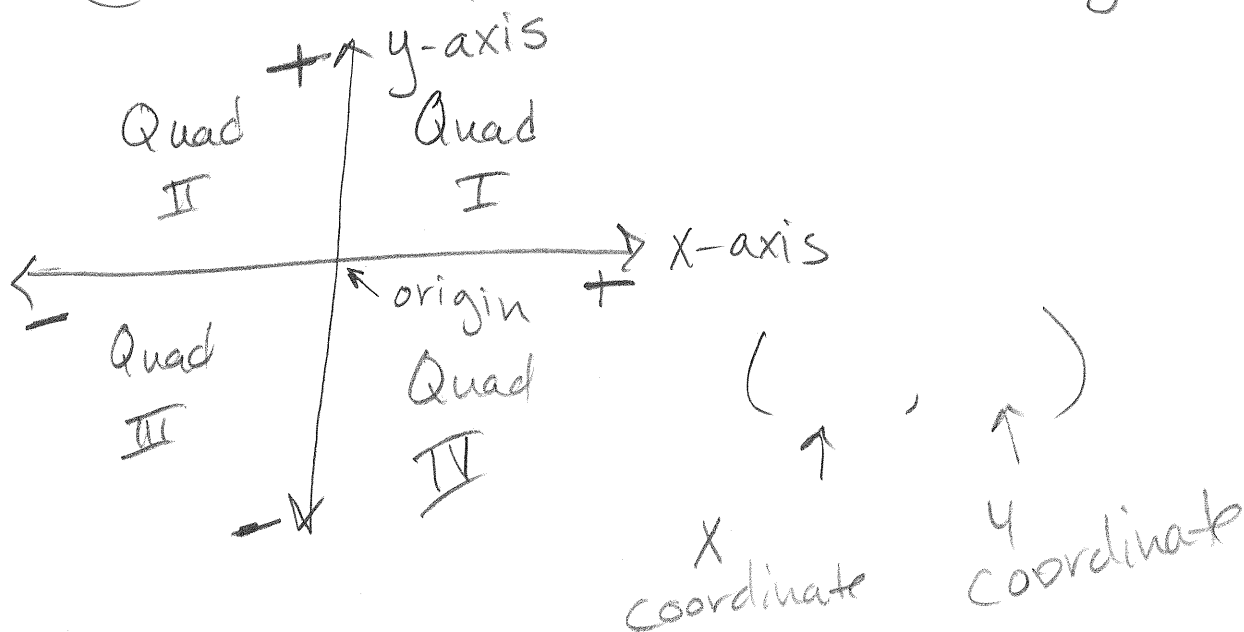 + y-axis
Quad
II
Quad
I
x-axis
+
-
origin
Quad
III
Quad
IV
-
( , )
x
coordinate
y
coordinate